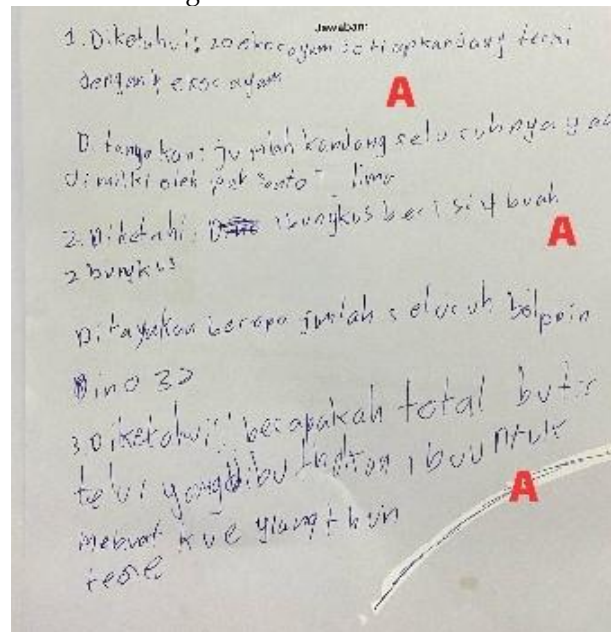 Jawaban:
1. Diketuhui: 20 ekor ayam setiap kandang terisi
dengan 4 ekor ayam
A
D tanyakan: jumlah kandang seluruhnya ya
dimilki oleh pak Santo lima
2. Diketahi: 1 bungkus berisi 4 buah
A
2 bungkus
Ditayakan berapa jumlah seluruh bolpoin
Dino 32
3 Diketahui: berapakah total butir
telur yang dibutuhkan ibu untuk
A
mebuat kue ulang